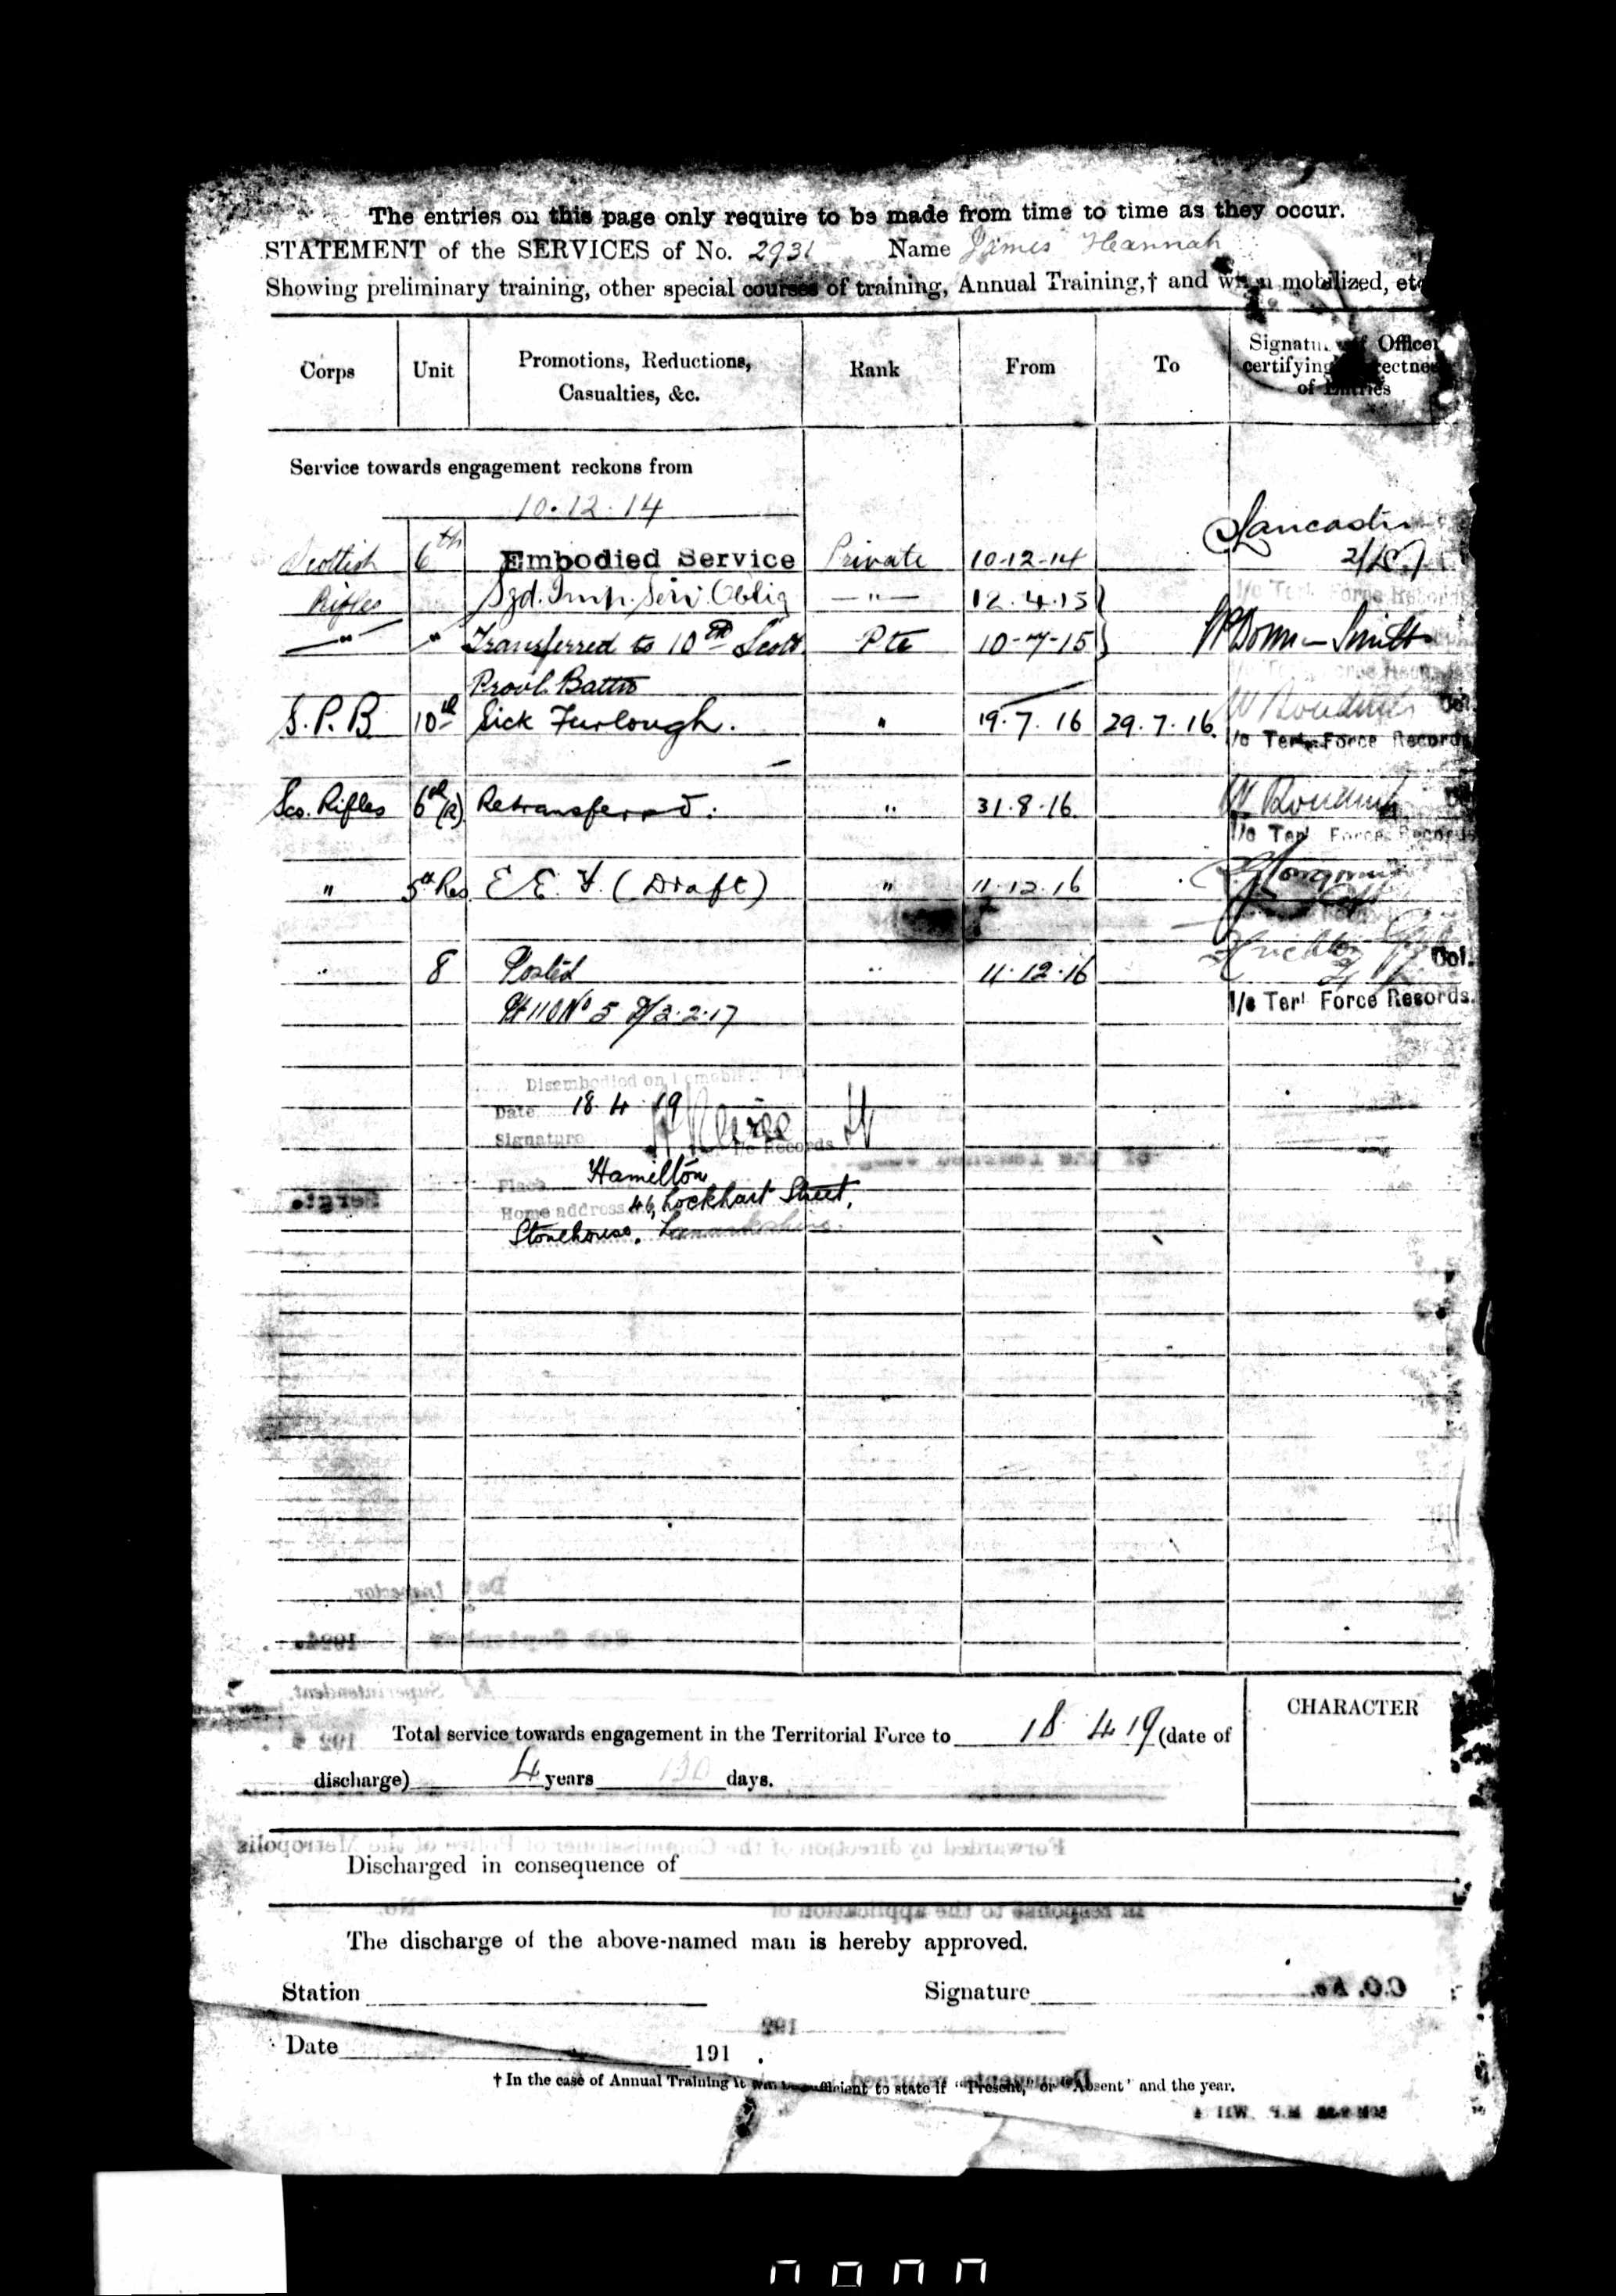 The entries on this page only require to be made from time to time as they occur.
STATEMENT of the SERVICES of No. 2931 Name James Hannah
Showing preliminary training, other special courses of training, Annual Training,† and when mobilized, etc
Corps Unit Promotions, Reductions, Casualties, &c. Rank From To Signature of Officer certifying correctness of Entries
Service towards engagement reckons from
10.12.14
Scottish 6th Embodied Service Private 10-12-14 Lancaster
Rifles Sgd. Imp. Serv. Oblig —"— 12.4.15
i/c Terl. Force Records
—"— " Transferred to 10th Scott. Pte 10-7-15 Smith
Provl. Battn
S.P.B. 10th Sick Furlough. " 19.7.16 29.7.16 Col.
i/c Terl. Force Records
Sco. Rifles 6th (R) Retransferred: " 31.8.16
i/c Terl. Force Records
" 5th Res E.E.F. (Draft) " 11.12.16
" 8 Posted " 11.12.16 Col.
Pt II O No 5 d/3.2.17
i/c Terl Force Records.
Disembodied on Demobilization
Date 18 4 19
Signature
i/c Records
Place Hamilton
Home address 46, Lockhart Street,
Stonehouse, Lanarkshire.
Sergt.
Dep Inspector.
September 1924.
Superintendent.
192
Total service towards engagement in the Territorial Force to 18 4 19 (date of
discharge) 4 years 130 days.
CHARACTER
Forwarded by direction of the Commissioner of Police of the Metropolis
Discharged in consequence of
No.
in response to the application of
The discharge of the above-named man is hereby approved.
Station Signature
C.O.
192
Date 191 .
† In the case of Annual Training it will be sufficient to state if "Present," or "Absent" and the year.